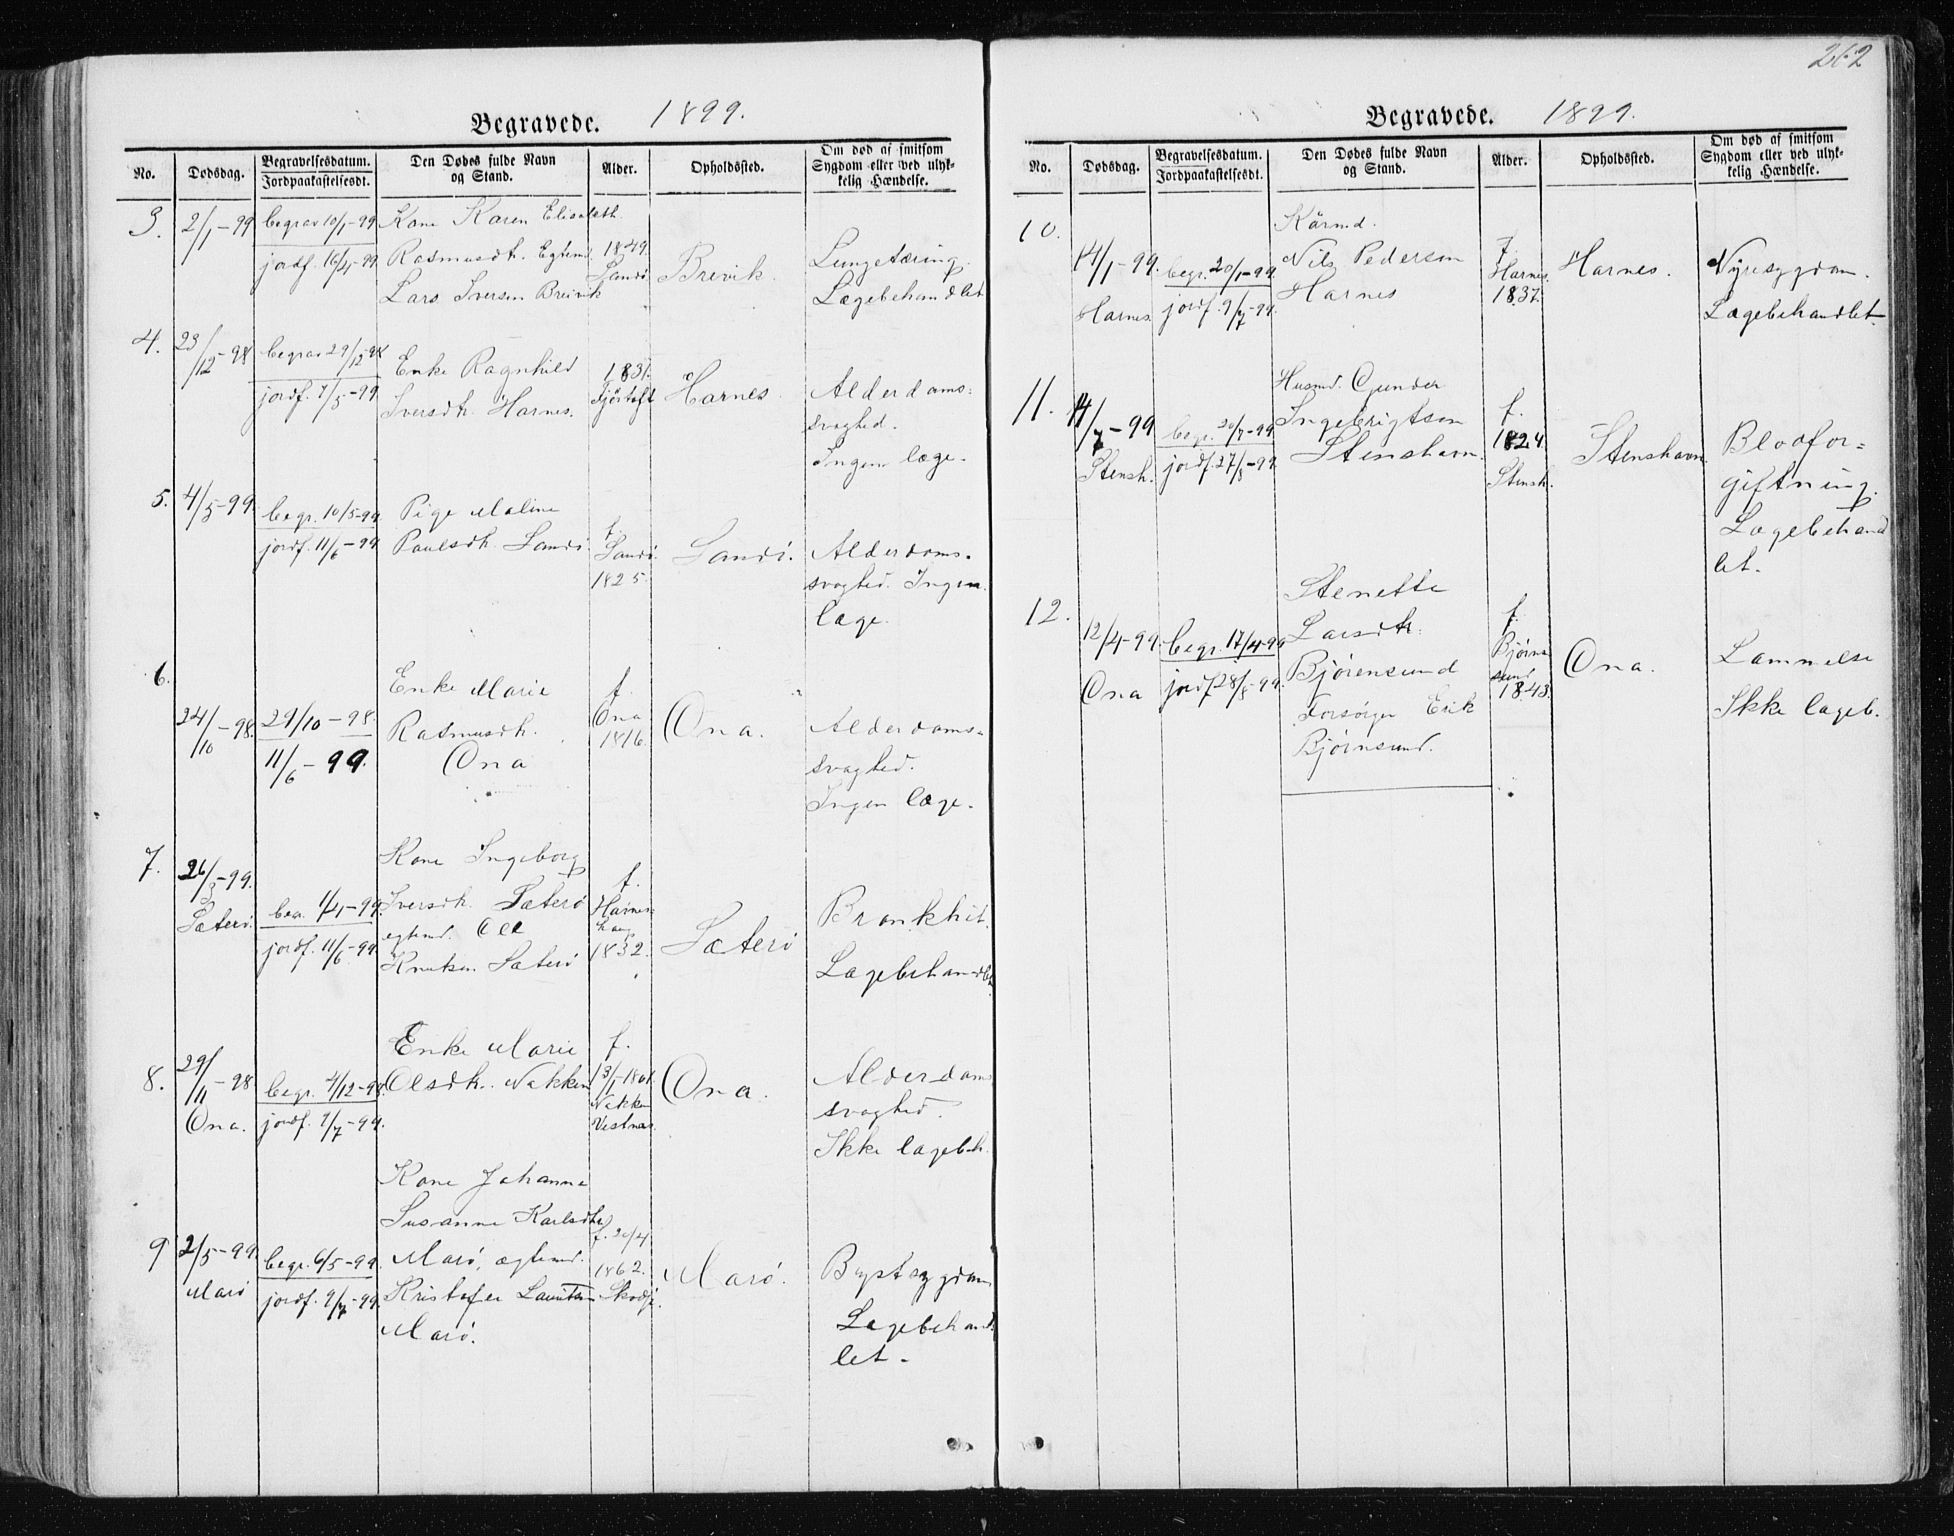 262
Begravede. 1899.
No.
Dødsdag.
Begravelsesdatum.
Jordpaakastelsesdt.
Den Dødes fulde Navn
og Stand.
Alder.
Opholdssted.
Om død af smitsom
Sygdom eller ved ulyk-
kelig Hændelse.
3.
2/1-99
begrav 10/1-99
jordf. 16/4-99
Kone Karen Elisabeth
Rasmusdt. Egtem.
Lars Iversen Breivik
1849.
Sandø
Brevik.
Lungetæring.
Lægebehandlet
4.
23/12-98
begrav 29/12-98
jordf. 7/5-99
Enke Ragnhild
Iversdt. Harnes.
1831.
Fjørtoft
Harnes.
Alderdoms=
svaghed.
Ingen læge.
5.
4/5-99.
begr. 10/5-99
jordf. 11/6-99
Pige Maline
Paulsdt. Sandø
f.
Sandø.
1825.
Sandø.
Alderdoms.
svaghed. Ingen
læge.
6.
24/10-98.
29/10-98.
11/6-99.
Enke Marie
Rasmusdt.
Ona
f.
Ona
1816.
Ona.
Alderdoms=
svaghed.
Ingen læge.
7.
26/3-99.
Sæterø.
begr. 1/4-99
jordf. 11/6-99
Kone Ingeborg
Iversdt. Sæterø
egtem. Ole
Knutsen Sæterø
f.
Harnes=
haug
1832.
Sæterø
Bronkhit.
Lægebehandlet
8.
29/11-98
Ona.
begr. 4/12-98.
jordf. 9/7-99.
Enke Marie
Olsdt. Nakken
f.
13/1-1801.
Nakken
Vestnæs.
Ona.
Alderdoms
svaghed.
Ikke lægebeh.
9
2/5-99.
Marø
begr. 6/5-99
jordf. 9/7-99.
Kone Johanna
Susanne Karlsdt.
Marø, egtemd.
Kristofer Lauritsen
Marø.
f. 20/4
1862.
Skodje.
Marø.
Brystsygdom
Lægebehand
let.
Begravede. 1899.
No.
Dødsdag.
Begravelsesdatum.
Jordpaakastelsesdt.
Den Dødes fulde Navn
og Stand.
Alder.
Opholdssted.
Om død af smitsom
Sygdom eller ved ulyk-
kelig Hændelse.
10.
14/1-99.
Harnes.
begr. 20/1-99
jordf. 9/7-99.
Kårmd.
Nils Pedersen
Harnes
f.
Harnes.
1837.
Harnes.
Nyresygdom.
Lægebehandlet.
11.
14/7-99
Stensh.
begr. 20/7-99
jordf. 27/8-99
Husmd. Gunder
Ingebrigtsen
Stenshavn.
f.
1824.
Stensh.
Stenshavn.
Blodfor=
giftning.
Lægebehand
let.
12.
12/4-99.
Ona
begr. 17/4-99
jordf. 28/8-99.
Stenette
Larsdt.
Bjørensund
Forsørger Erik
Bjørnsund.
f.
Bjørn
sund
1843.
Ona.
Lammelse
Ikke lægeb.